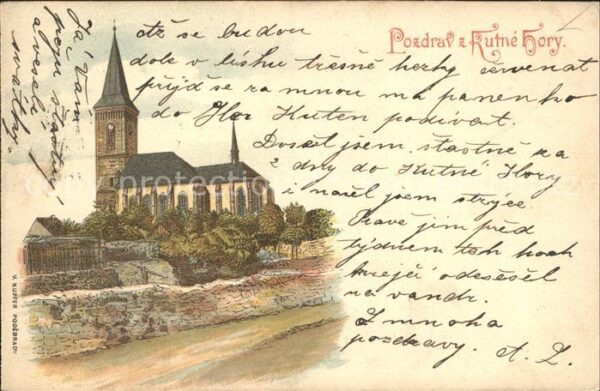 Pozdrav z Kutné Hory.
až se budou
dole v lísku třešně hezky červenat
přijď se za mnou má panenko
do Hor Kuten podívat.
Došel jsem šťastně za
2 dny do Kutné Hory
i našel jsem strýce.
Právě jim před
týdnem ten hoch
krejčí odešel
na vandr.
Z mnoha
pozdravy. A. Z.
Já Vám
přeju šťastný
a veselé
svátky.
V. KUPFER PODĚBRADY